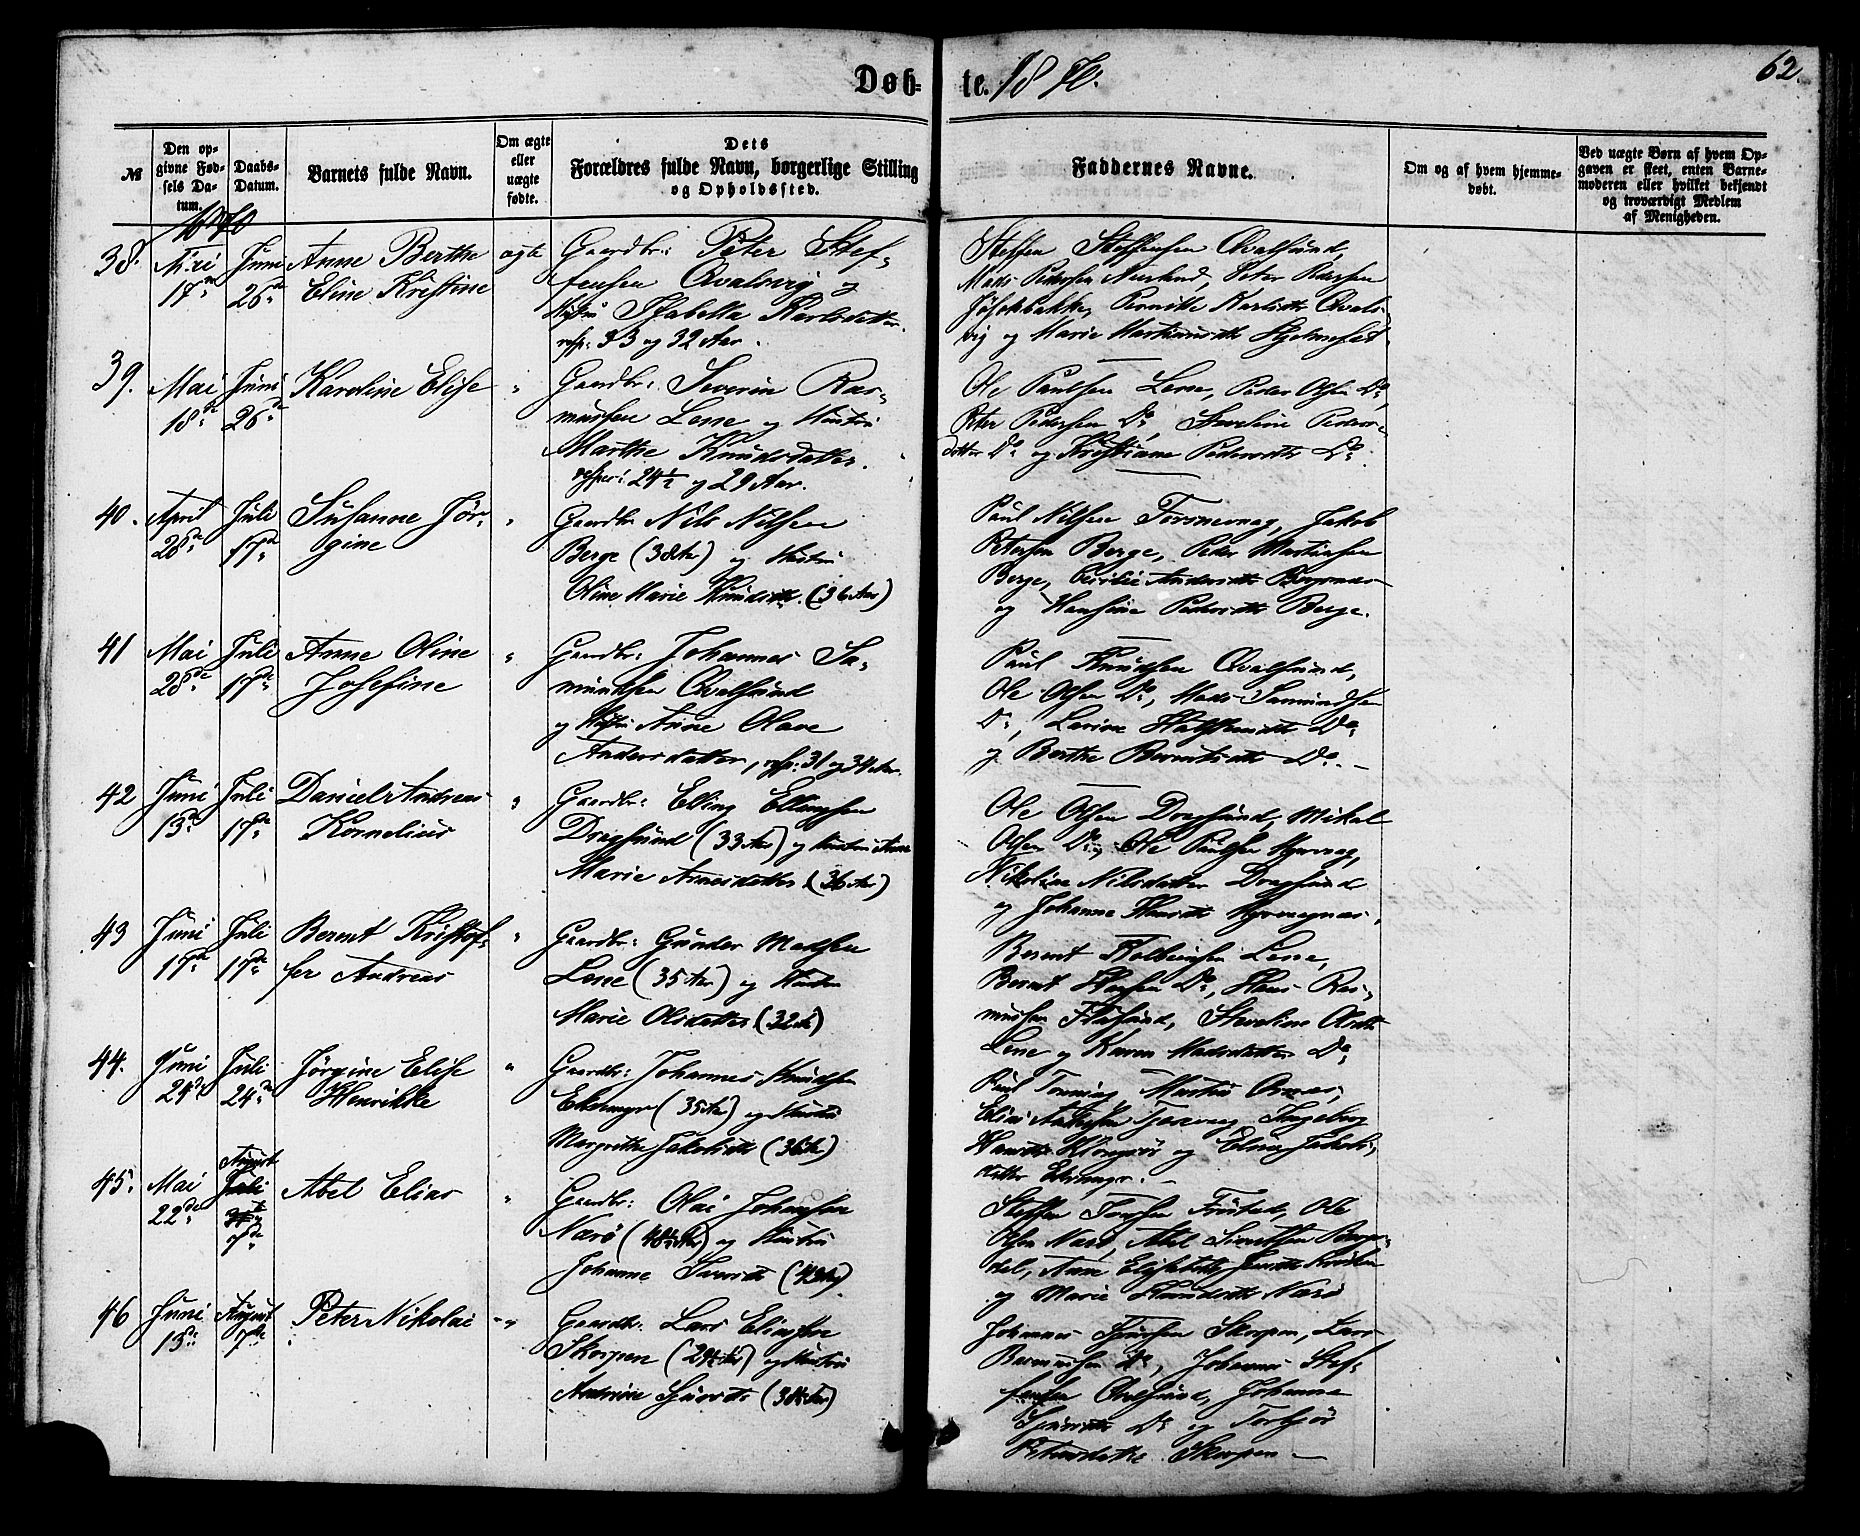 Døb-te. 1870.
62.
№
Den op-
givne Fød-
sels Da-
tum.
Daabs-
Datum.
Barnets fulde Navn.
Om ægte
eller
uægte
fødte.
Dets
Forældres fulde Navn, borgerlige Stilling
og Opholdssted.
Faddernes Navne.
Om og af hvem hjemme-
døbt.
Ved uægte Børn af hvem Op-
gaven er skeet, enten Barne-
moderen eller hvilket bekjendt
og troværdigt Medlem
af Menigheden.
1870
38. Mai 17de Juni 26de Anne Berthe Eline Kristine ægte
Gaardbr: Peter Stef-
fensen Qvalsvig og
Hustru Isabella Karlsdatter.
resp: 33 og 32 Aar.
Steffen Steffensen Qvalsund,
Mads Pedersen Nærland, Peter Larssen
Jøsokbakke, Pernille Karlsdtr Qvals-
vig og Marie Martinusdtr Hjelmeset.
39. Mai 18de Juni 26de Karoline Elise "
Gaardbr: Severin Ras-
mussen Lene og Hustru
Marthe Knudsdatter.
resper: 24½ og 29 Aar.
Ole Paulsen Lene, Peder Olsen Do,
Peter Pedersen Do, Seveline Peders-
datter Do og Kristianne Pedersdtr Do.
40. April 28de Juli 17de Susanne Jør-
gine "
Gaardbr Nils Nilsen
Berge (38 Ar) og Hustru
Oline Marie Knudsdtr. (36 Aar)
Paul Nilsen Torsnervaag, Jakob
Petersen Berge, Peder Martinsen
Berge, Cecilie Andersdtr
og Hansine Pedersdtr Berge.
41 Mai 28de Juli 17de Anne Oline
Josefine "
Gaardbr: Johannes Sa-
mundsen Qvalsund
og Hustru Anne Olave
Andersdatter, resp: 31 og 34 Aar.
Paul Knudsen Qvalsund,
Ole Olsen Do, Mads Samundsen
Do, Larine Do
og Berthe Berntsdtr Do. -
42 Juni 13de Juli 17de Daniel Andreas
Kornelius "
Gaardbr: Elling Ellingsen
Dragsund (33 Aar) og Hustru Anne
Marie Arnesdatter (36 Aar)
Ole Olsen Dragsund, Mikal
Olsen Do, Ole Paulsen
Nikoline Nilsdatter Dragsund
og Johanne Hansdtr
43 Juni 17de Juli 17de Berent Kristof-
fer Andreas "
Gaardbr: Gunder Madsen
Lene (35 Aar) og Hustru
Marie Olsdatter (32 Ar)
Berent Kolbeinsen Lene,
Berent Hansen Do, Hans Ras-
mussen Flusund, Seveline Olsdtr
Lene og Karen Madsdatter Do,
44. Juni 24de Juli 24de Jørgine Elise
Henrikke "
Gaardbr: Johannes Knudsen
Ekremyr (35 Ar) og Hustru
Margrethe Jakobsdtr (36 Ar)
Paul
Ingeborg
og Eline Jakobs-
datter Ekremyr. -
45. Mai 22de August Juli 31te 7de Abel Elias "
Gaardbr: Olai Johansen
Nærø (48½ Ar) og Hustru
Johanne Sivertsdtr (43 Ar)
Steffen Frøstad, Ole
Olsen Nærø, Abel
dal, Anne Elisabeth
og Marie Knudsdtr Nærø
46 Juni 13de August 7de Peter Nikolai - "
Gaardbr: Lars Eliassen
Skorpen (29½ Ar) og Hustru
Andrine Sjursdtr (30½ Aar)
Johannes Sjursen Skorpen, Lars
Rasmussen Do, Johannes Stef-
fensen Qvalsund, Johanne
Sjursdtr Do og
Petersdatter Skorpen -